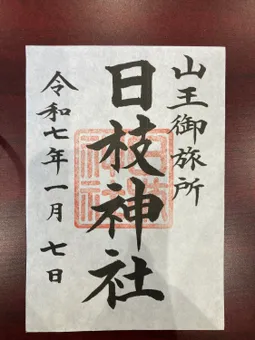 山王御旅所
日枝神社
令和七年一月七日